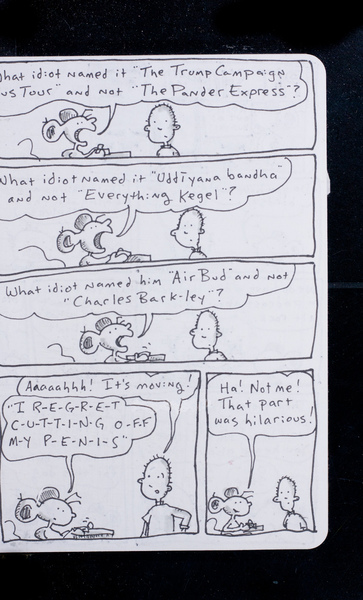 hat idiot named it "The Trump Campaign
us Tour" and not "The Pander Express"?
What idiot named it "Uddīyana bandha"
and not "Everything Kegel"?
What idiot named him "Air Bud" and not
"Charles Bark-ley"?
Aaaaahhh! It's moving!
"I R-E-G-R-E-T
C-U-T-T-I-N-G O-F-F
M-Y P-E-N-I-S"
Ha! Not me!
That part
was hilarious!